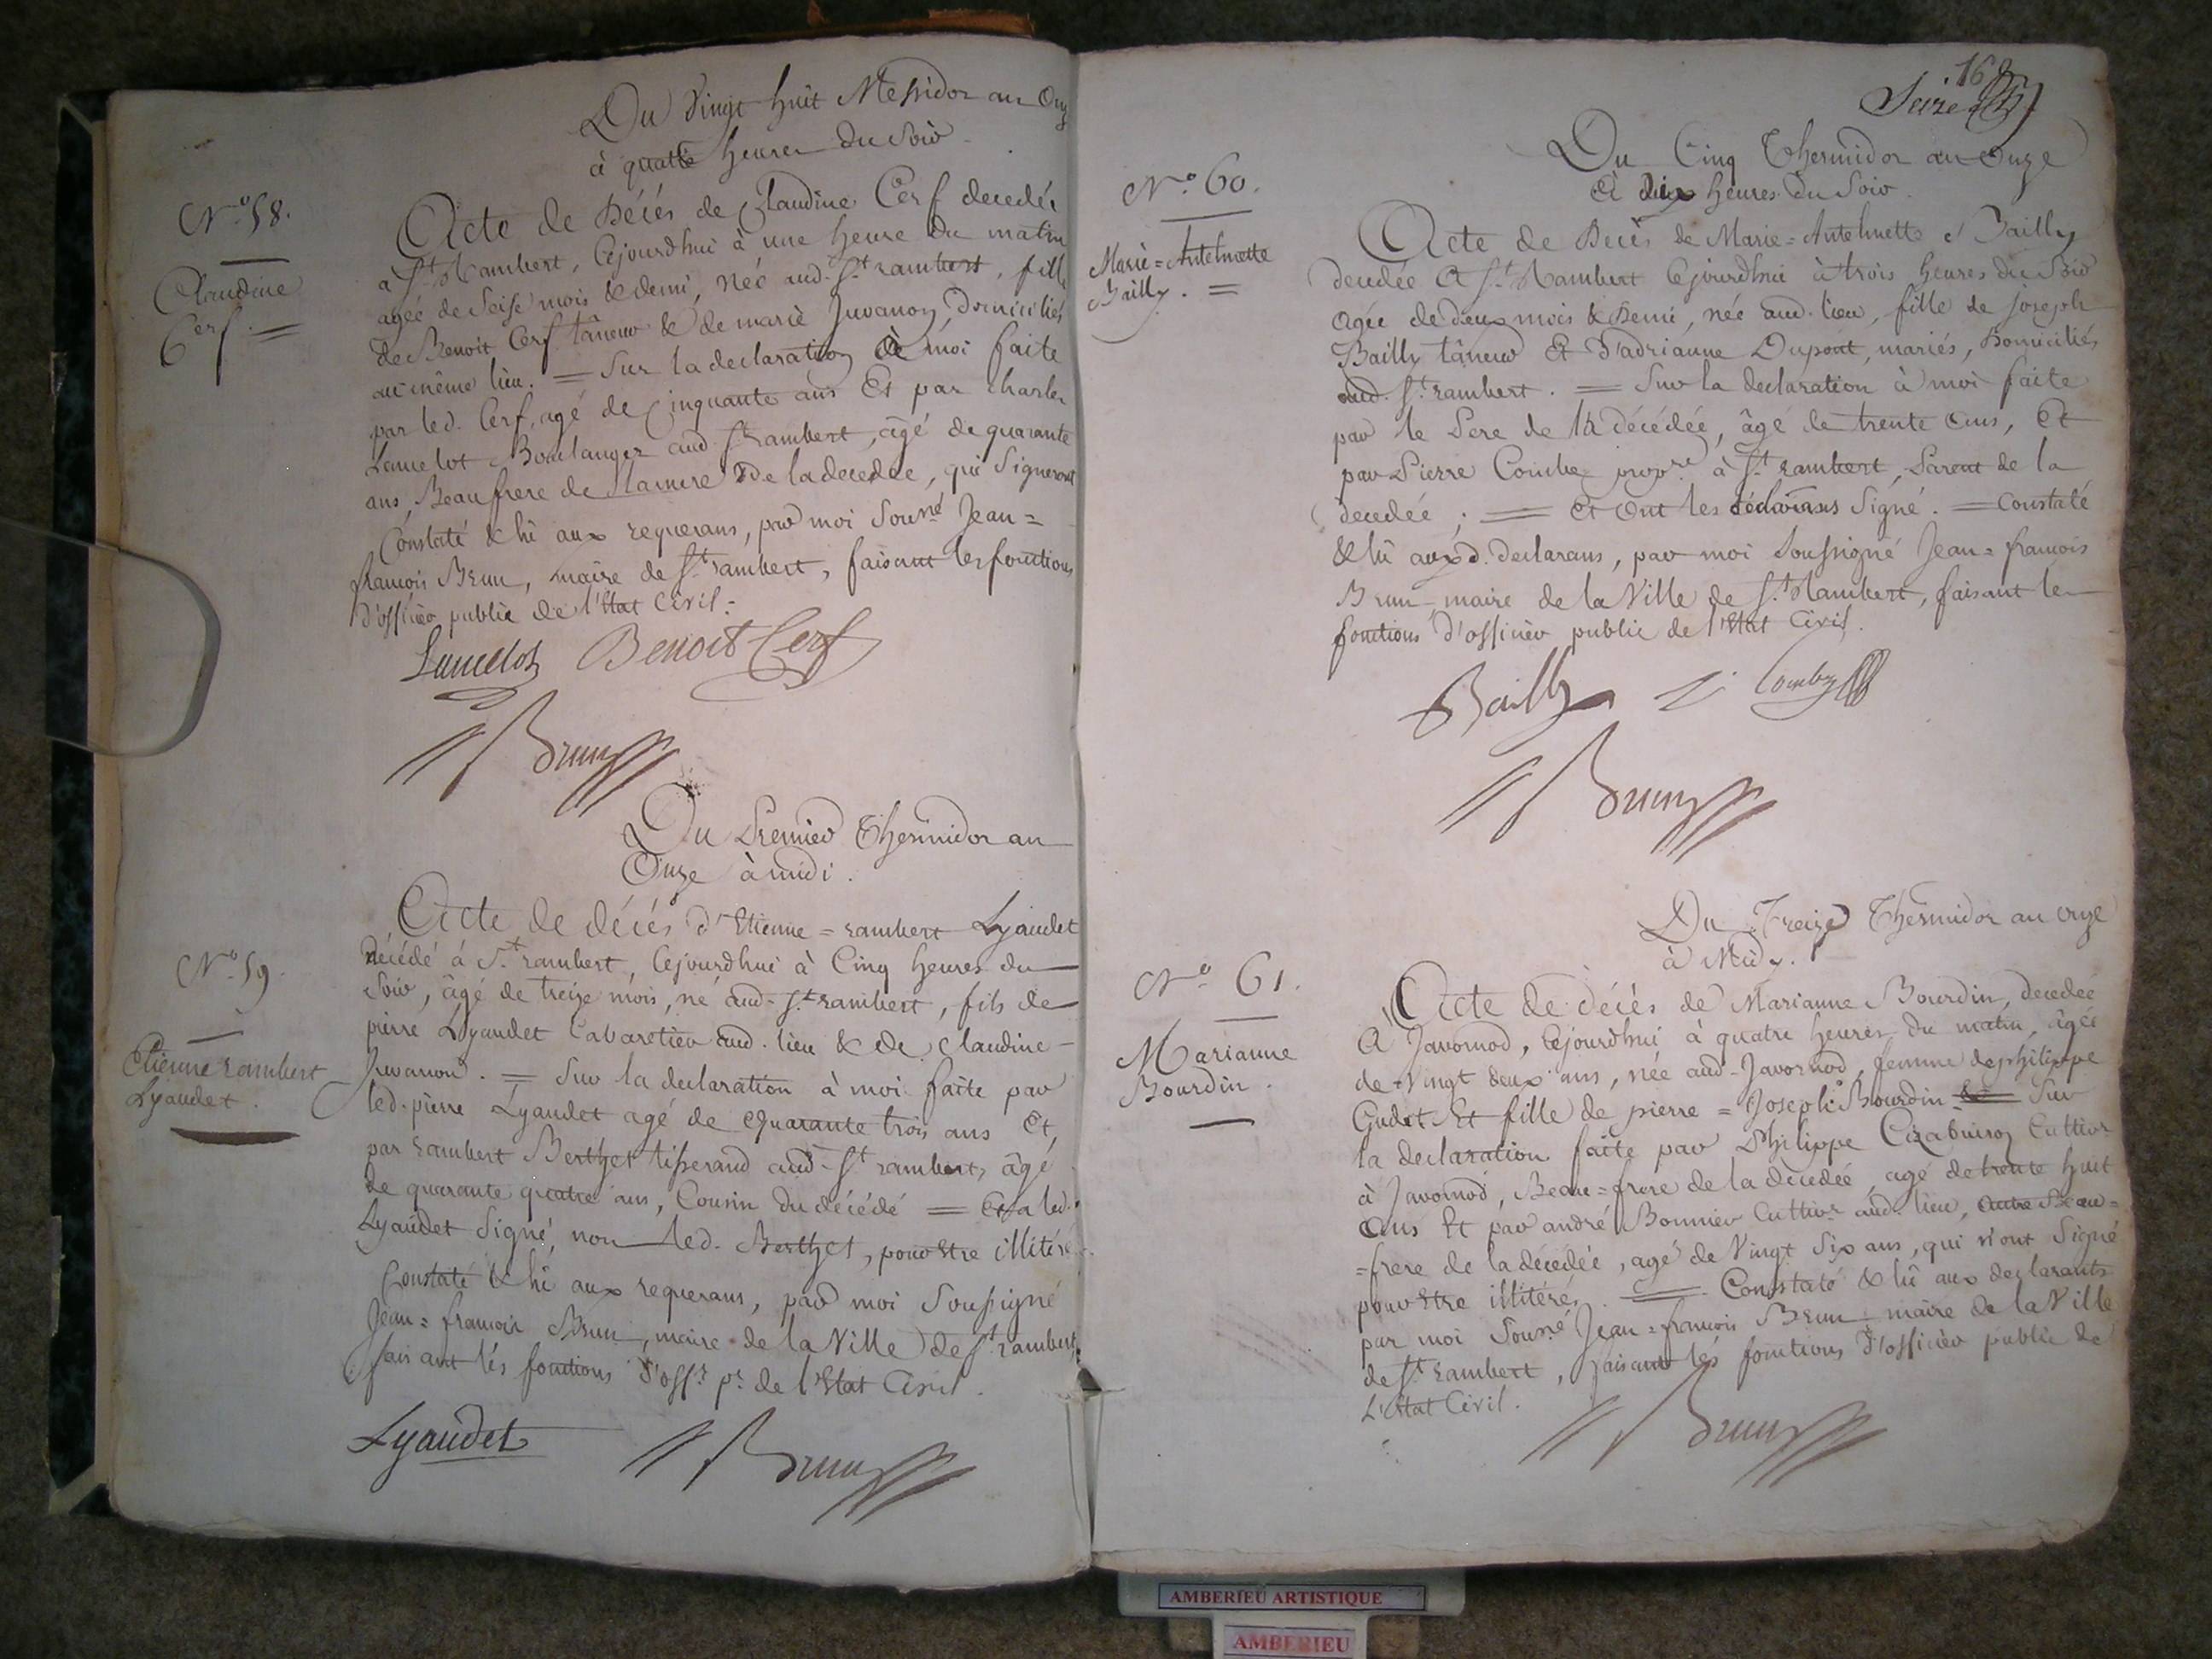 Du Vingt huit Messidor an Onze
à quatre heures du Soir.
N.º 58.
Claudine
Cerf. =
Acte de Décés de Claudine Cerf decedée
à S.t Rambert, Cejourdhui à une heure du matin
agée de Seise mois & demi, née aud. S.t rambert, fille
de Benoit Cerf tâneur & de marie Juvanon, Domiciliés
au même lieu. = Sur la declaration à moi faite
par led. Cerf, agé de Cinquante ans Et par charles
Lancelot Boulanger aud. S.t rambert, âgé de quarante
ans, Beaufrere de la mere de la decedée, qui Signeront
Constaté & lû aux requerans, par moi Sousné Jean=
françois Brun, maire de S.t rambert, faisant les fonctions
d'officier public de l'Etat Civil.
Lancelot Benoit Cerf
Brun
Du Premier Thermidor an
Onze à midi.
N.º 59.
Etienne rambert
Lyaudet.
Acte de décés d'Etienne=rambert Lyaudet
Décédé à S.t rambert, Cejourdhui à Cinq heures du
Soir, âgé de treize mois, né aud. S.t rambert, fils de
pierre Lyaudet Cabaretier aud. lieu & de Claudine
Juvanon. = Sur la declaration à moi faite par
led. pierre Lyaudet agé de quarante trois ans Et,
par rambert Berthet tisserand aud. S.t rambert, âgé
de quarante quatre ans, Cousin du décédé = Et a led.
Lyaudet Signé, non led. Berthet, pour Etre illitéré.
Constaté & lû aux requerans, par moi Soussigné
Jean=françois Brun, maire de la Ville de S.t rambert,
faisant les fonctions d'off.r p.c de l'Etat Civil.
Lyaudet Brun
168
Seize
Du Cinq Thermidor an Onze
à dix heures du Soir.
N.º 60.
Marie=Antelmette
Bailly. =
Acte de Decés de Marie=Antelmette Bailly
decedée à S.t Rambert Cejourdhui à trois heures du Soir
agée de deux mois & Demi, née aud. lieu, fille de joseph
Bailly tâneur Et d'adrianne Dupont, mariés, Domiciliés
aud. S.t rambert. = Sur la declaration à moi faite
par le Pere de la décédée, âgé de trente ans, Et
par Pierre Combe prop.re à S.t rambert, Parent de la
decedée; = Et Ont les déclarans Signé. = Constaté
& lû auxd. declarans, par moi Soussigné Jean=françois
Brun, maire de la Ville de S.t Rambert, faisant les
fonctions d'officier public de l'Etat Civil.
Bailly Combe
Brun
Du Treize Thermidor an onze
à Midy.
N.º 61.
Marianne
Bourdin.
Acte de décés de Marianne Bourdin, decedée
A Javornod, Cejourdhui à quatre heures du matin, âgée
de Vingt deux ans, née aud. Javornod, femme de philippe
Gudet Et fille de pierre=Joseph Bourdin Sur
la declaration faite par Philippe Cultiv.r
à Javornod, Beau=frere de la décedée, agé de trente huit
Ans Et par andré Bonnier Cultiv.r aud. lieu, Autre Beau=
=frere de la decedée, agé de Vingt Six ans, qui n'ont Signé
pour Etre illitérés. = Constaté & lû aux declarants
par moi Sousné Jean=françois Brun maire de la Ville
de S.t rambert, faisant les fonctions d'officier public de
L'Etat Civil.
Brun
AMBERIEU ARTISTIQUE
AMBERIEU